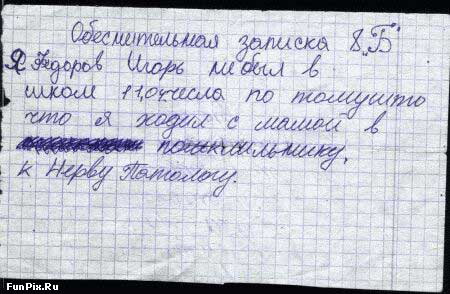 Обеснительная записка 8 "Б"
Я Федоров Игорь не был в
школ 11,04 числа по томушто
что я ходил с мамой в
к Нерву Потологу.
FunPix.Ru